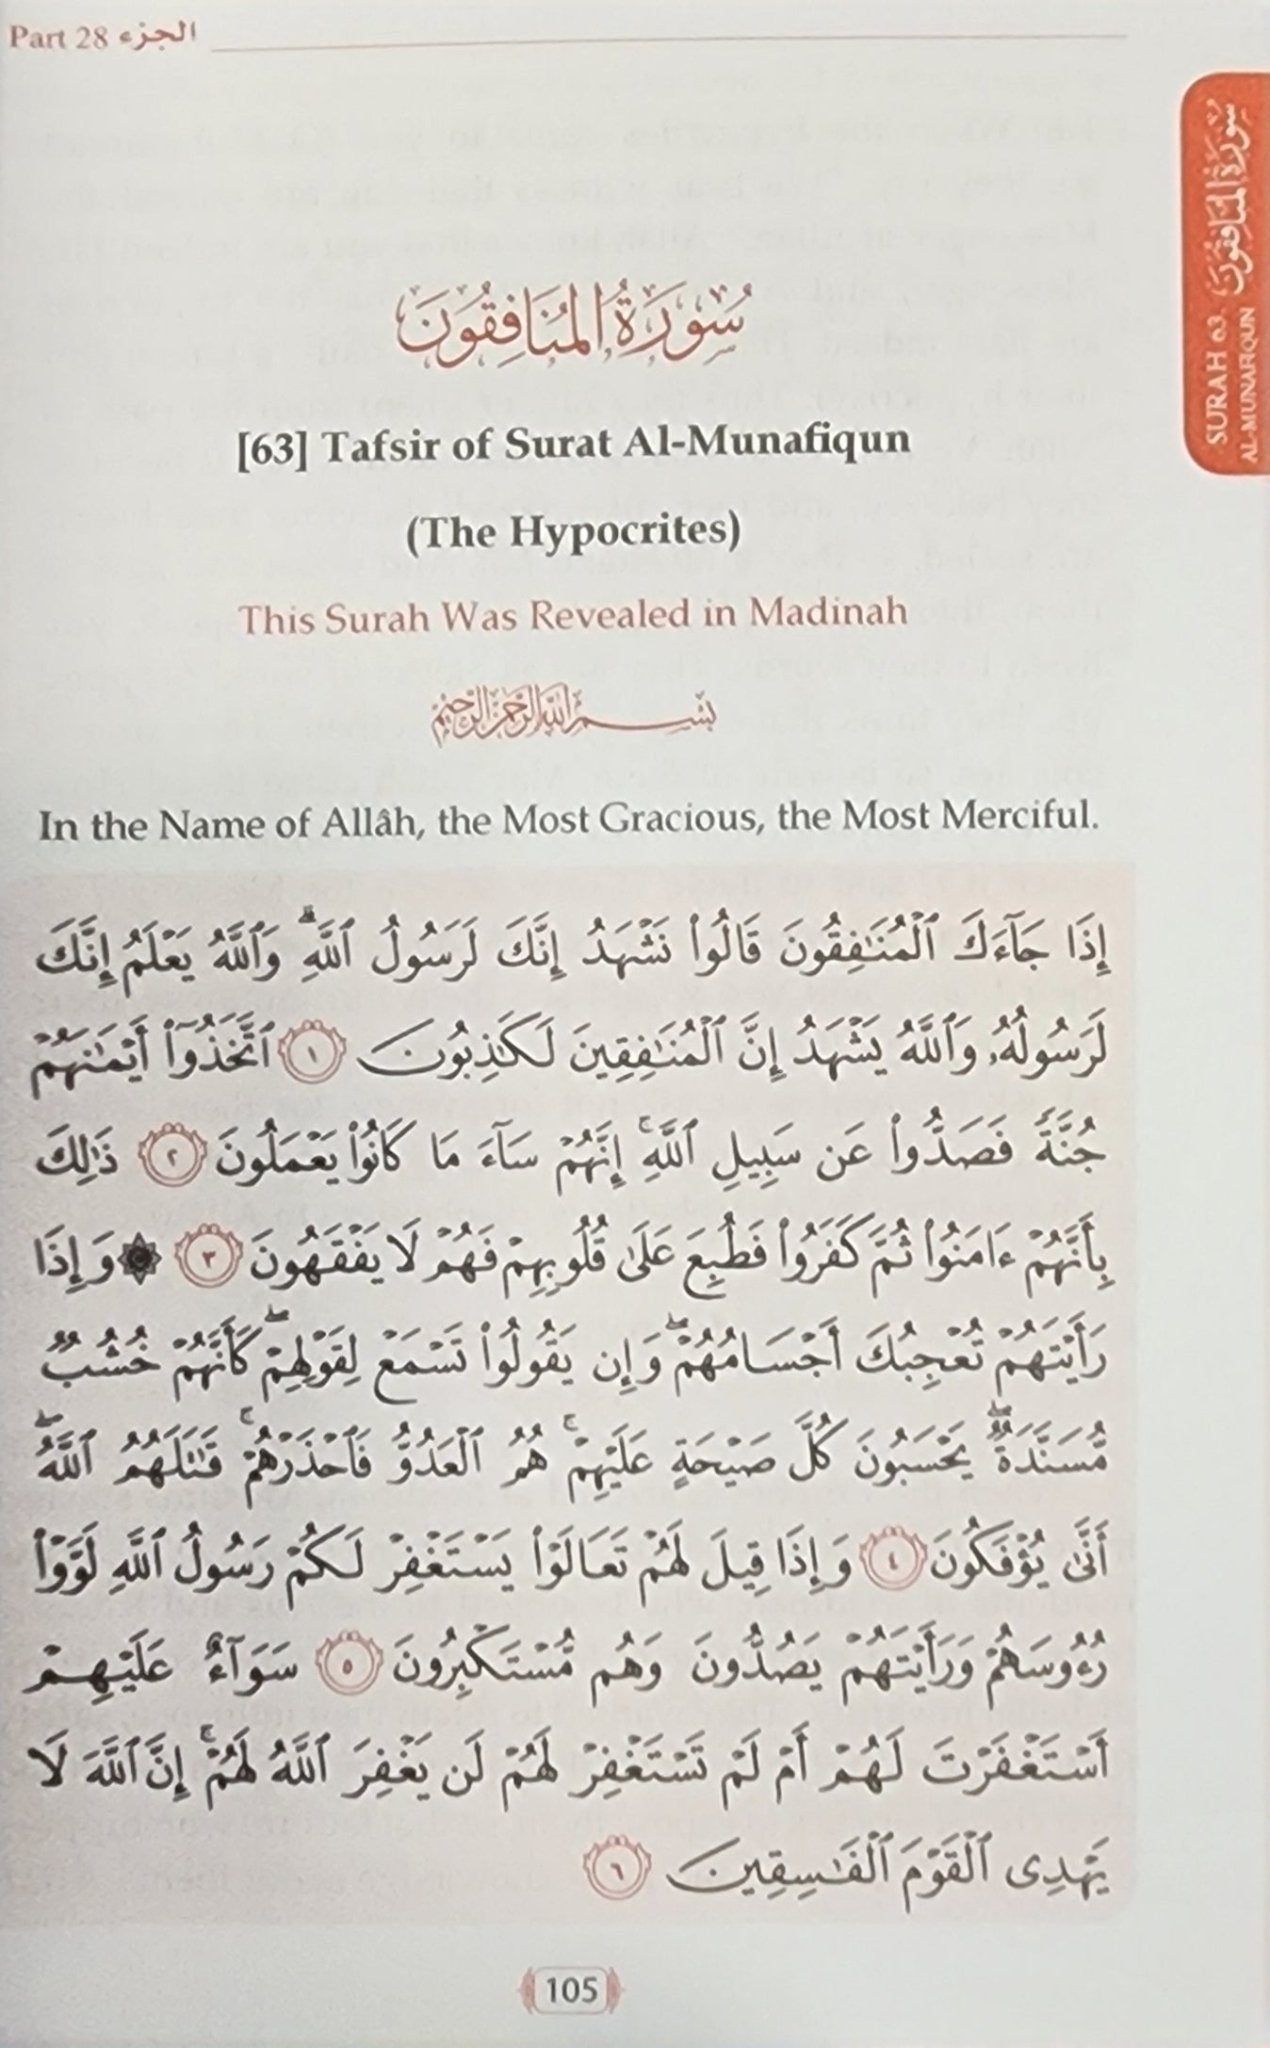 Part 28 الجزء
سُورَةُ المُنَافِقُونَ
SURAH 63
AL-MUNAFIQUN
سُورَةُ المُنَافِقُونَ
[63] Tafsir of Surat Al-Munafiqun
(The Hypocrites)
This Surah Was Revealed in Madinah
بِسْمِ اللَّهِ الرَّحْمَنِ الرَّحِيمِ
In the Name of Allâh, the Most Gracious, the Most Merciful.
إِذَا جَآءَكَ ٱلْمُنَٰفِقُونَ قَالُوا۟ نَشْهَدُ إِنَّكَ لَرَسُولُ ٱللَّهِ ۗ وَٱللَّهُ يَعْلَمُ إِنَّكَ
لَرَسُولُهُۥ وَٱللَّهُ يَشْهَدُ إِنَّ ٱلْمُنَٰفِقِينَ لَكَٰذِبُونَ ١ ٱتَّخَذُوٓا۟ أَيْمَٰنَهُمْ
جُنَّةً فَصَدُّوا۟ عَن سَبِيلِ ٱللَّهِ ۚ إِنَّهُمْ سَآءَ مَا كَانُوا۟ يَعْمَلُونَ ٢ ذَٰلِكَ
بِأَنَّهُمْ ءَامَنُوا۟ ثُمَّ كَفَرُوا۟ فَطُبِعَ عَلَىٰ قُلُوبِهِمْ فَهُمْ لَا يَفْقَهُونَ ٣ ۞ وَإِذَا
رَأَيْتَهُمْ تُعْجِبُكَ أَجْسَامُهُمْ ۖ وَإِن يَقُولُوا۟ تَسْمَعْ لِقَوْلِهِمْ ۖ كَأَنَّهُمْ خُشُبٌ
مُّسَنَّدَةٌ ۖ يَحْسَبُونَ كُلَّ صَيْحَةٍ عَلَيْهِمْ ۚ هُمُ ٱلْعَدُوُّ فَٱحْذَرْهُمْ ۚ قَٰتَلَهُمُ ٱللَّهُ ۖ
أَنَّىٰ يُؤْفَكُونَ ٤ وَإِذَا قِيلَ لَهُمْ تَعَالَوْا۟ يَسْتَغْفِرْ لَكُمْ رَسُولُ ٱللَّهِ لَوَّوْا۟
رُءُوسَهُمْ وَرَأَيْتَهُمْ يَصُدُّونَ وَهُم مُّسْتَكْبِرُونَ ٥ سَوَآءٌ عَلَيْهِمْ
أَسْتَغْفَرْتَ لَهُمْ أَمْ لَمْ تَسْتَغْفِرْ لَهُمْ لَن يَغْفِرَ ٱللَّهُ لَهُمْ ۚ إِنَّ ٱللَّهَ لَا
يَهْدِى ٱلْقَوْمَ ٱلْفَٰسِقِينَ ٦
105